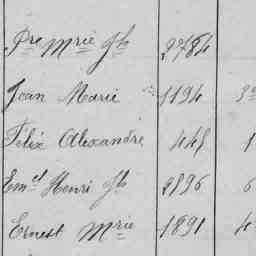 Pre Mrie Jh 2784
Jean Marie 1194
Félix Alexandre 445 1
Em.el Henri Jh 2896 6
Ernest Mrie 1891 4